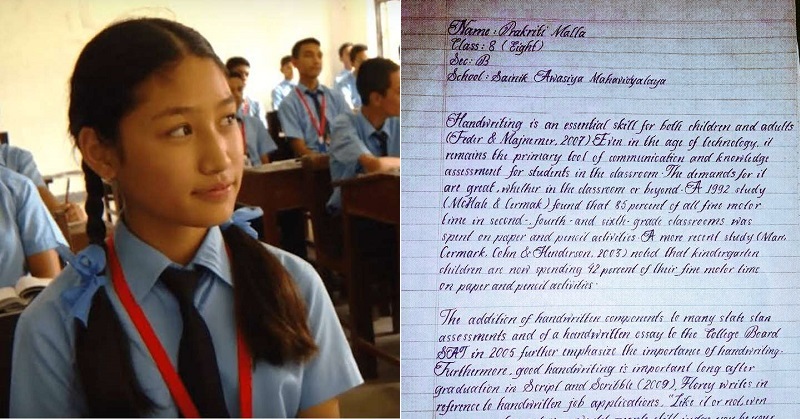 Name : Prakriti Malla
Class : 8 ( Eight)
Sec : B
School : Sainik Awasiya Mahavidyalaya
Handwriting is an essential skill for both children and adults
(Feder & Majnemer, 2007) Even in the age of technology, it
remains the primary tool of communication and knowledge
assessment for students in the classroom. The demands for it
are great, whether in the classroom or beyond. A 1992 study
(McHale & Cermak) found that 85 percent of all fine motor
time in second-, fourth- and sixth- grade classrooms was
spent on paper and pencil activities. A more recent study (Marr,
Cermark, Cohn & Henderson, 2003) noted that kindergarten
children are now spending 42 percent of their fine motor time
on paper and pencil activities.
The addition of handwritten components to many state stan
assessments and of a handwritten essay to the College Board
SAT in 2005 further emphasize the importance of handwriting.
Furthermore, good handwriting is important long after
graduation in Script and Scribble (2009), Florey writes in
reference to handwritten job applications, "Like it or not, even